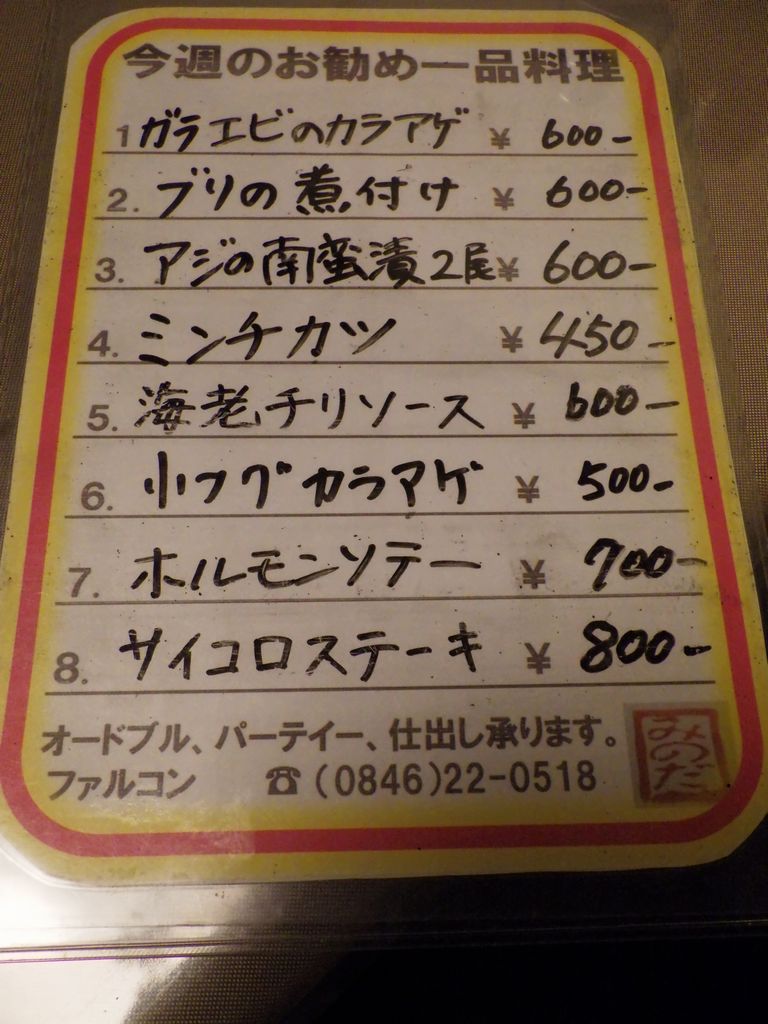 今週のお勧め一品料理
1 ガラエビのカラアゲ ¥ 600-
2. ブリの煮付け ¥ 600-
3. アジの南蛮漬2尾 ¥ 600-
4. ミンチカツ ¥ 450-
5. 海老チリソース ¥ 600-
6. 小フグカラアゲ ¥ 500-
7. ホルモンソテー ¥ 700-
8. サイコロステーキ ¥ 800-
オードブル、パーテイー、仕出し承ります。
ファルコン ☎(0846)22-0518
みのだ